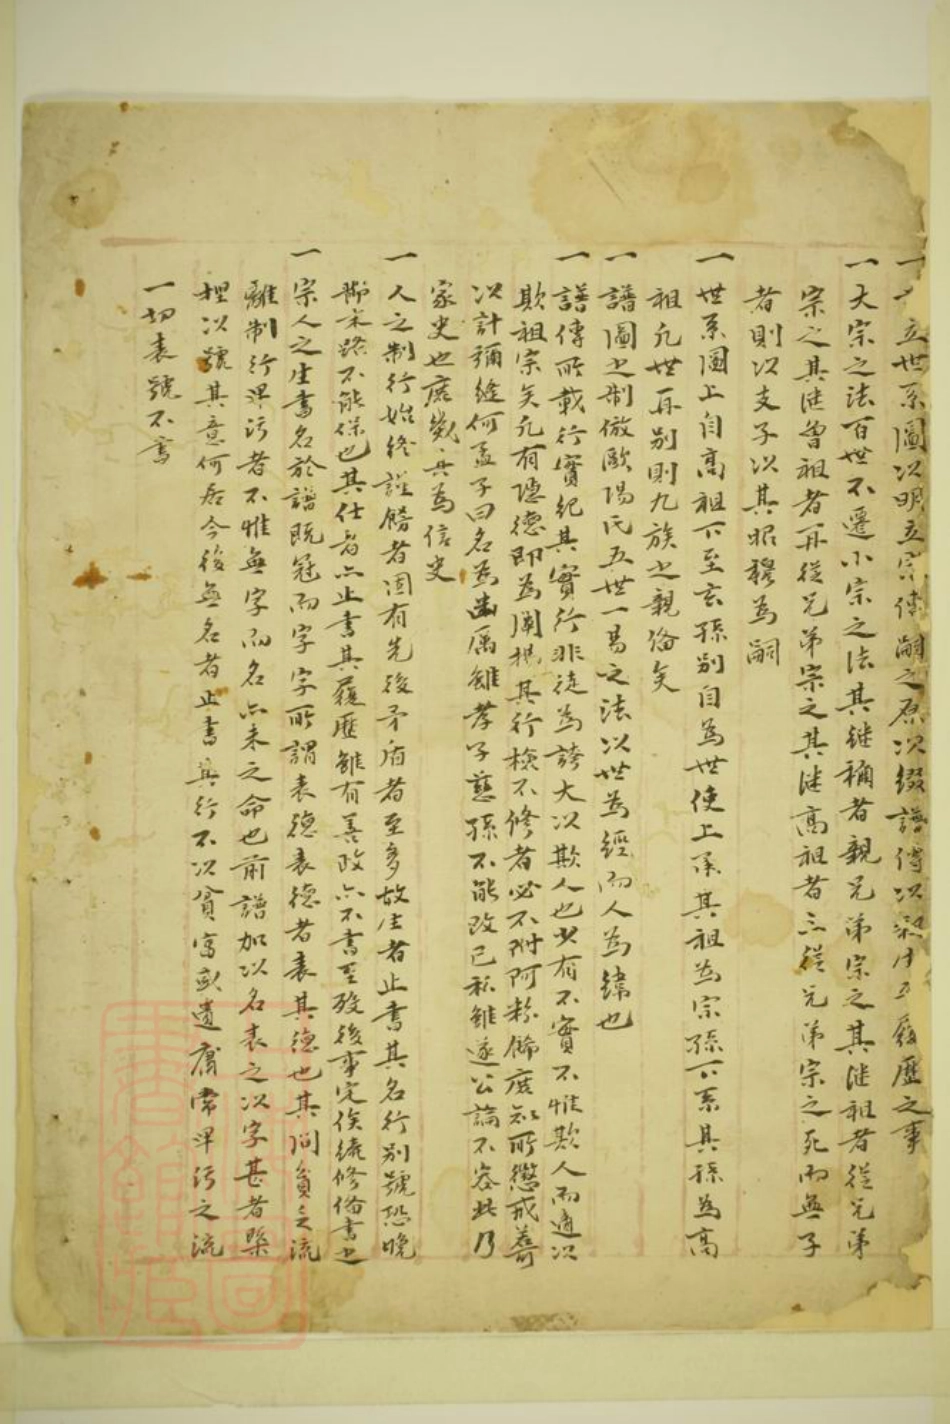 一立世系圖以明立宗傳嗣之原次綴譜傳以梁履歷之事
一大宗之法百世不遷小宗之法其繼禰者親兄弟宗之其継祖者從兄弟
宗之其継曾祖者再從兄弟宗之其継高祖者三從兄弟宗之死而無子
者則以支子以其昭穆為嗣
一世系圖上自高祖下至玄孫別自為世使上承其祖為宗孫下系其孫為高
祖凡世再別則九族之親備矣
一譜圖之制倣歐陽氏五世一易之法以世為經而人為緯也
一譜傳所載行實紀其實行非徒為誇大以欺人也少有不實不惟欺人而適以
欺祖宗矣凡有隱德即為闡揚其行檢不修者必不附阿粉餙庶知所懲戒善
以計彌縫何孟子曰名為幽厲雖孝子慈孫不能改已私雖遂公論不容此乃
家史也庶幾共為信史
一人之制行始終謹餙者固有先後矛盾者至多故生者止書其名行別號恐晚
節末路不能保也其仕者亦止書其履歷雖有善政亦不書至歿後事定俟續修俻書之
一宗人之生書名於譜既冠而字字所謂表德表德者表其德也其間貧乏流
離制行卑污者不惟無字而名亦未之命也前譜加以名表之以字甚者槩
裡以號其意何居今後無名者止書其行不以貧富或遺庸常卑污之流
一切表號不書